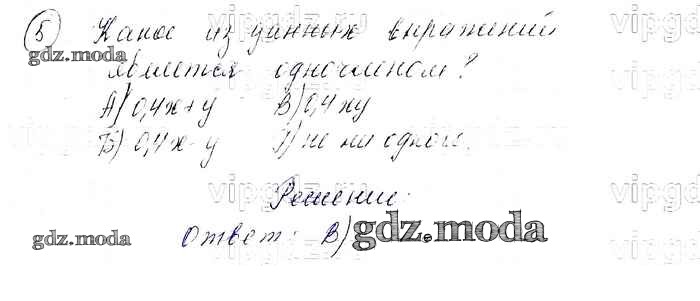 5) Какое из данных выражений
является одночленом?
А) 0,4x+y В) 0,4xy
Б) 0,4x-y Г) ни одного.
Решение:
Ответ: В)
gdz.moda
gdz.moda
gdz.moda
gdz.moda